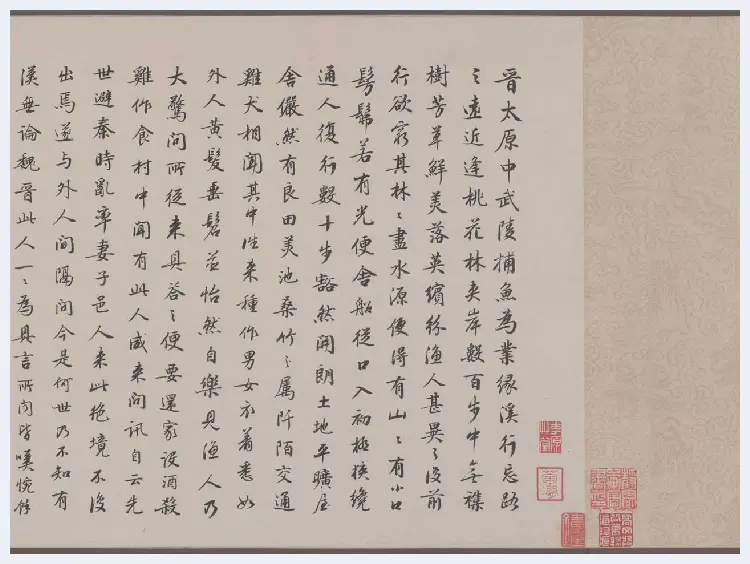 晉太原中武陵捕魚為業緣溪行忘路
之遠近逢桃花林夾岸數百步中無雜
樹芳草鮮美落英繽紛漁人甚異之復前
行欲窮其林林盡水源便得有山山有小口
髣髴若有光便舍船從口入初極狹纔
通人復行數十步豁然開朗土地平曠屋
舍儼然有良田美池桑竹之屬阡陌交通
雞犬相聞其中往來種作男女衣着悉如
外人黃髮垂髫並怡然自樂見漁人乃
大驚問所從來具答之便要還家設酒殺
雞作食村中聞有此人咸來問訊自云先
世避秦時亂率妻子邑人來此絕境不復
出焉遂与外人間隔問今是何世乃不知有
漢無論魏晉此人一一為具言所聞皆嘆惋餘